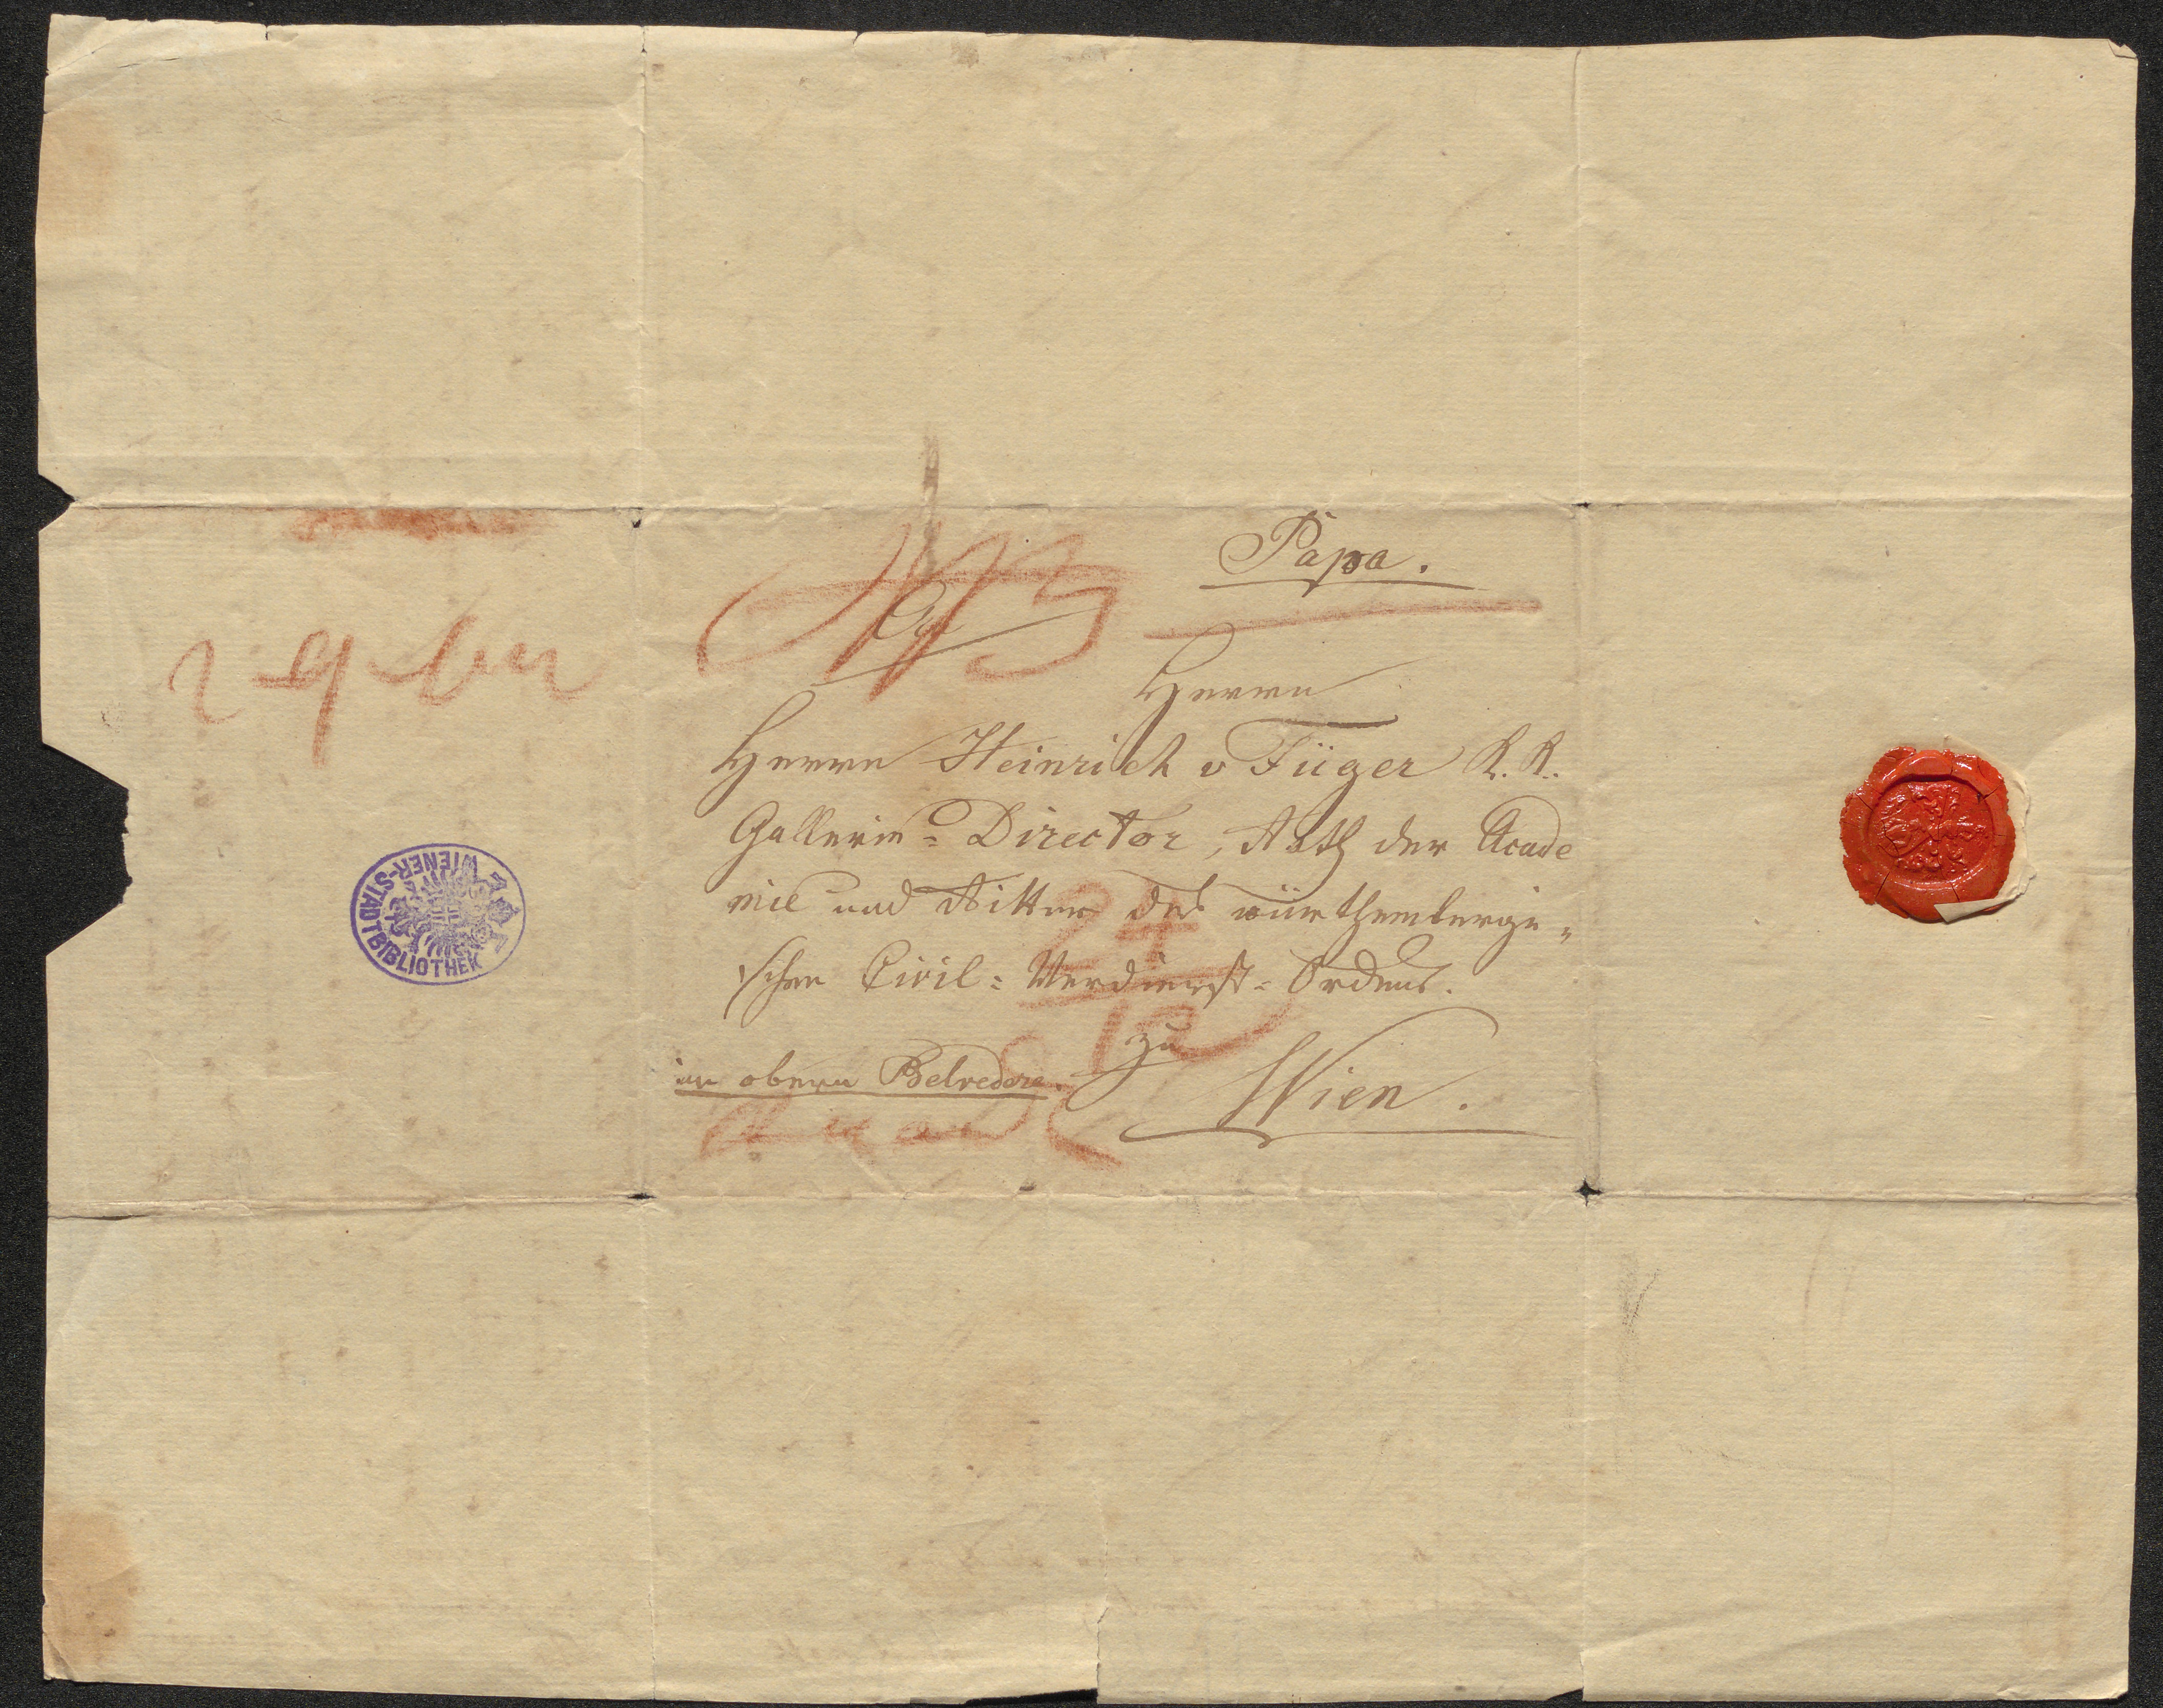 Papa.
Herrn
Herrn Heinrich v Füger K. K.
Gallerie=Director, Rath der Acade
mie und Ritter des würthembergi„
schen Civil=Verdienst=Ordens.
zu
im obern Belvedere.
Wien.
24
12
WIENER-STADTBIBLIOTHEK